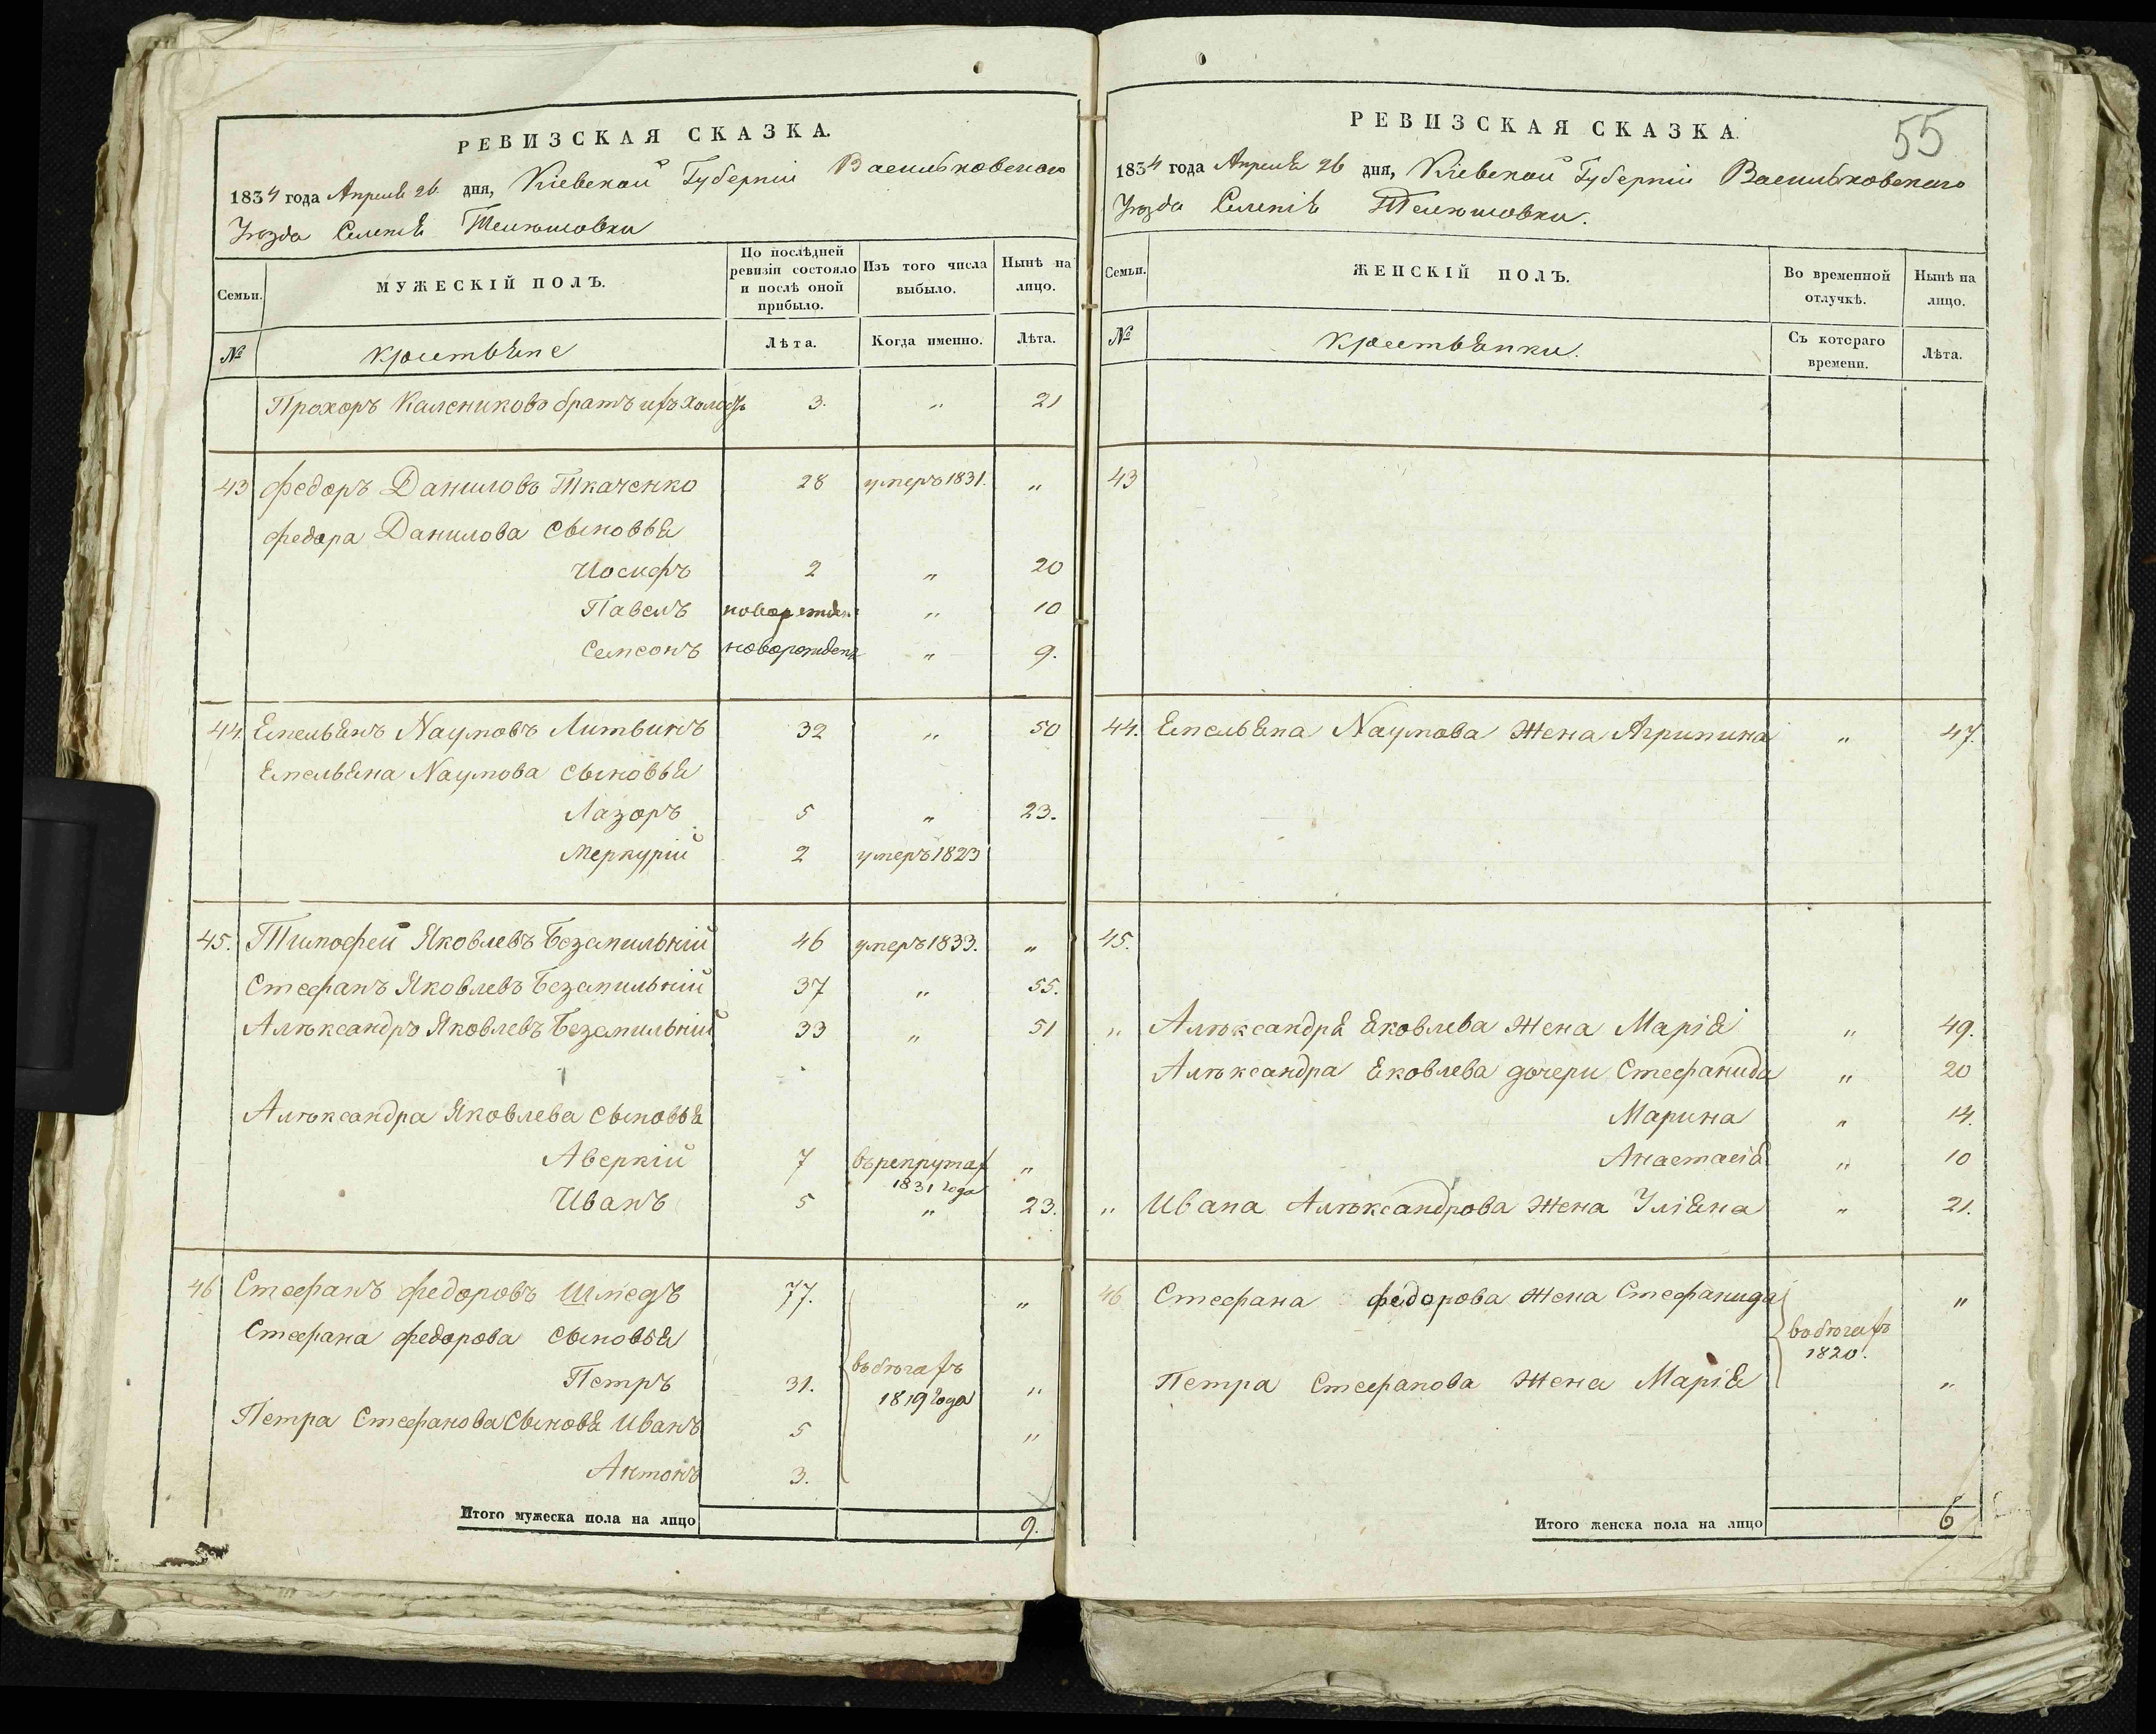 РЕВИЗСКАЯ СКАЗКА.
1834 года Апреля 26 дня, Кіевской Губерніи Васильковского
Уезда Селенія Телюшовки
Семьи.
МУЖЕСКІЙ ПОЛЪ.
По послѣдней ревизіи состояло и послѣ оной прибыло.
Изъ того числа выбыло.
Нынѣ на лицо.
№
крестьяне
Лѣта.
Когда именно.
Лѣта.
Прохоръ Калениковъ братъ ихъ 3. " 21
43 Федоръ Даниловъ Ткаченко 28 умеръ 1831. "
Федора Данилова сыновья
Иосифъ 2 " 20
Павелъ новорожден " 10
Самсонъ новорожденъ " 9.
44. Емельянъ Наумовъ Литвинъ 32 " 50
Емельяна Наумова сыновья
Лазоръ 5 " 23.
Меркурій 2 умеръ 1823
45. Тимофей Яковлевъ Безпильній 46 умеръ 1833. "
Стефанъ Яковлевъ 37 " 55.
Алѣксандръ Яковлевъ 33 " 51
Алѣксандра Яковлева сыновья
Аверкій 7 въ рекрутах "
1831 года
Иванъ 5 " 23.
46 Стефанъ Федоровъ 77. "
Стефана Федорова сыновья
Петръ 31. въ бѣгахъ
1819 года "
Петра Стефанова сыновья Иванъ 5 "
Антонъ 3.
Итого мужеска пола на лицо 9.
РЕВИЗСКАЯ СКАЗКА.
55
1834 года Апреля 26 дня, Кіевской Губерніи Васильковского
Уѣзда Селенія Телюшовки.
Семьи.
ЖЕНСКІЙ ПОЛЪ.
Во временной отлучкѣ.
Нынѣ на лицо.
№
крестьянки.
Съ котораго времени.
Лѣта.
43
44. Емельяна Наумова жена Агрипина " 47.
45.
" Алѣксандра Яковлева жена Марія " 49.
Алѣксандра Яковлева дочери Стефанида " 20
Марина " 14.
Анастасія " 10
" Ивана Алѣксандрова жена Уліяна " 21.
46 Стефана Федорова жена Стефанида "
въ бѣгахъ
1820.
Петра Стефанова жена Марія "
Итого женска пола на лицо 6